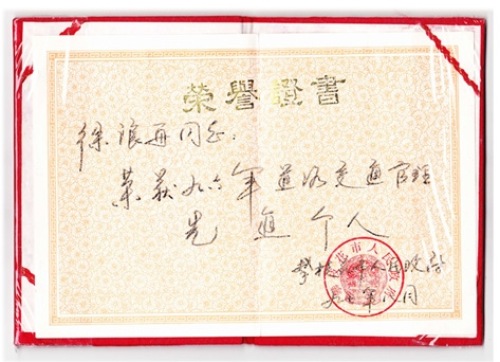 榮譽證書
徐浪舟同志:
荣获九六年道路交通管理
先进个人
攀枝花市人民政府
九七年 月